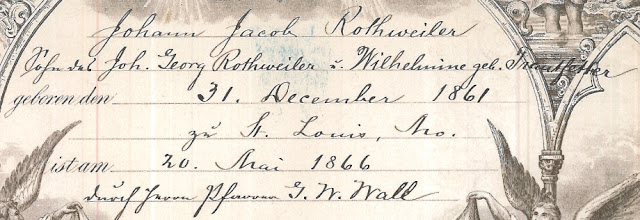 Johann Jacob Rothweiler
Sohn des Joh. Georg Rothweiler u. Wilhelmine geb. Trautfetter
geboren den 31. December 1861
zu St. Louis, Mo.
ist am 20. Mai 1866
durch Herrn Pfarrer G. W. Wall